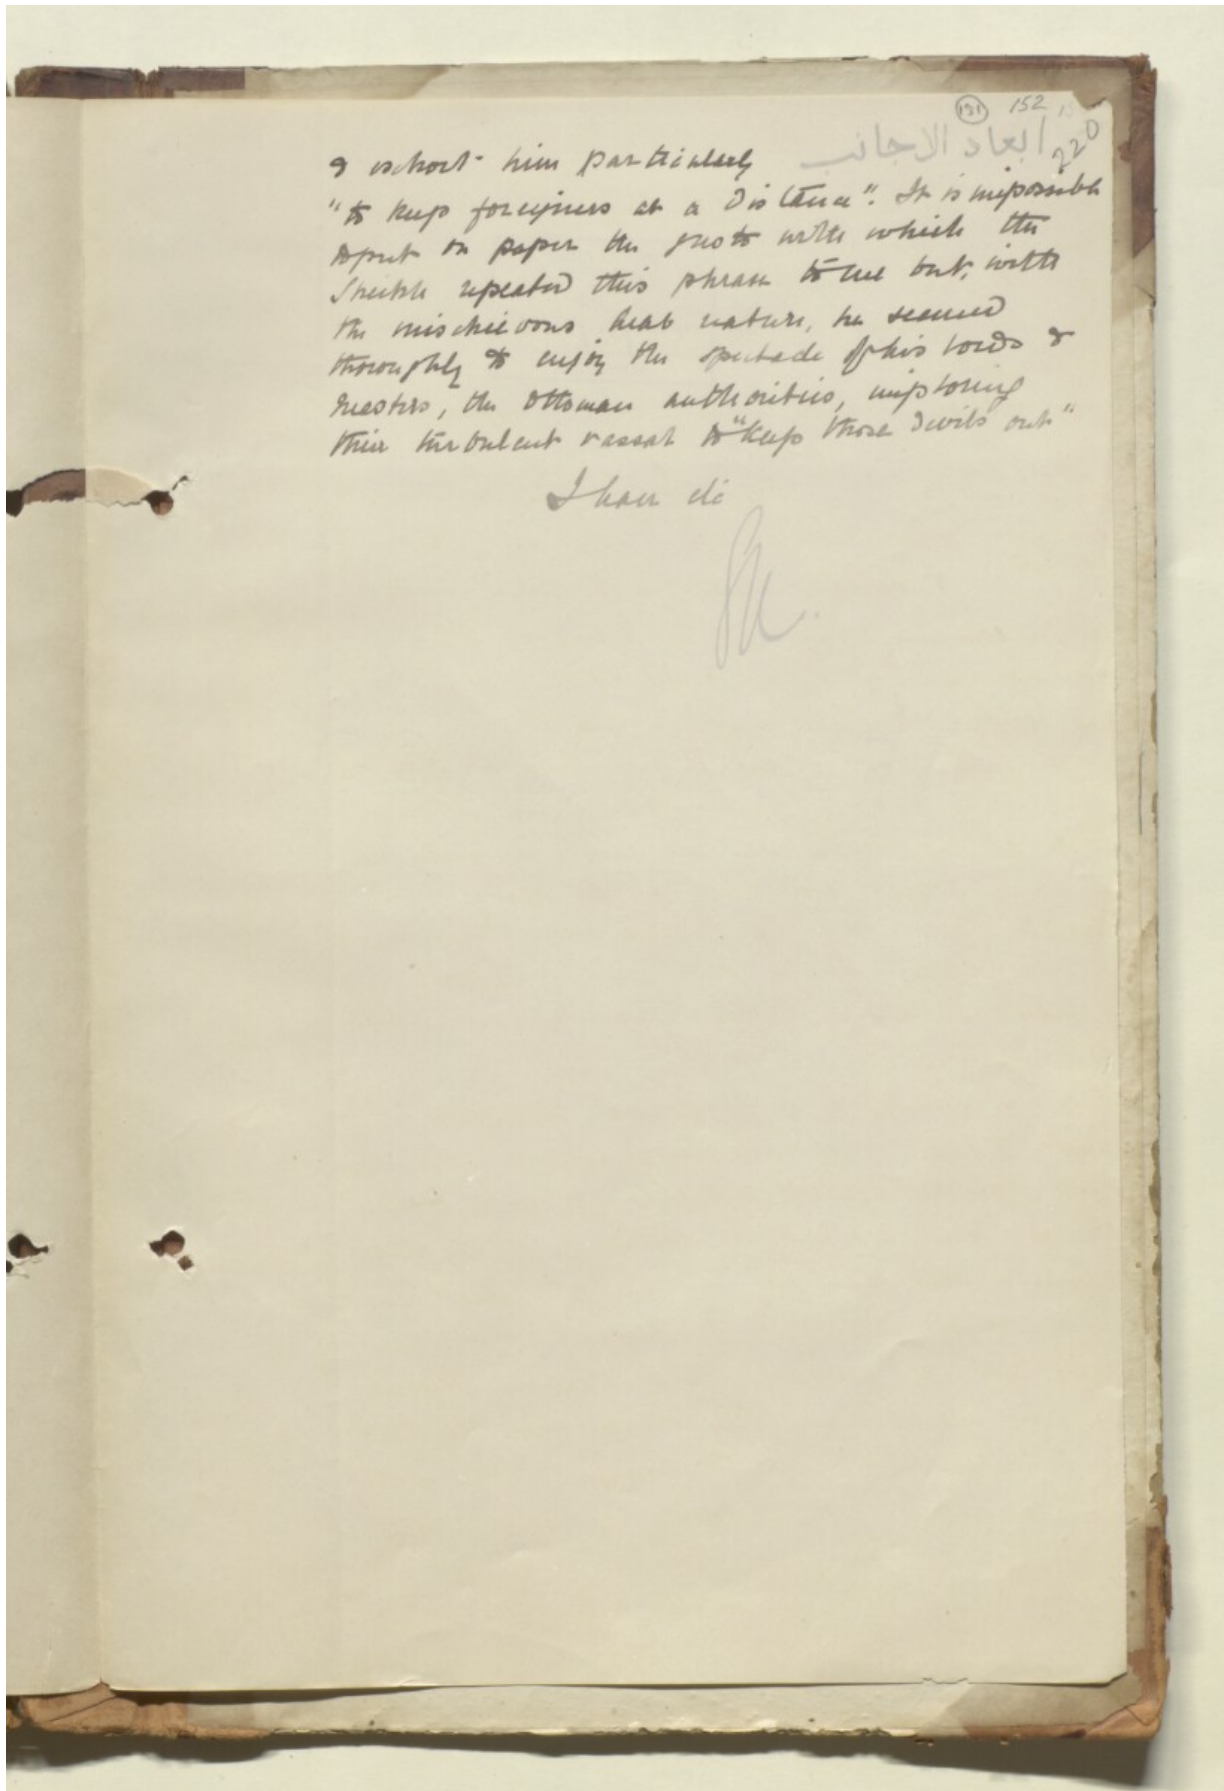 131 152
220
& exhort him particularly ابعاد الاجانب
"to keep foreigners at a distance". It is impossible
to put on paper the gusto with which the
Sheikh repeated this phrase to me but, with
the mischievous Arab nature, he seemed
thoroughly to enjoy the spectacle of his lords &
masters, the Ottoman authorities, imploring
their turbulent vassal to "keep those devils out"
I have etc